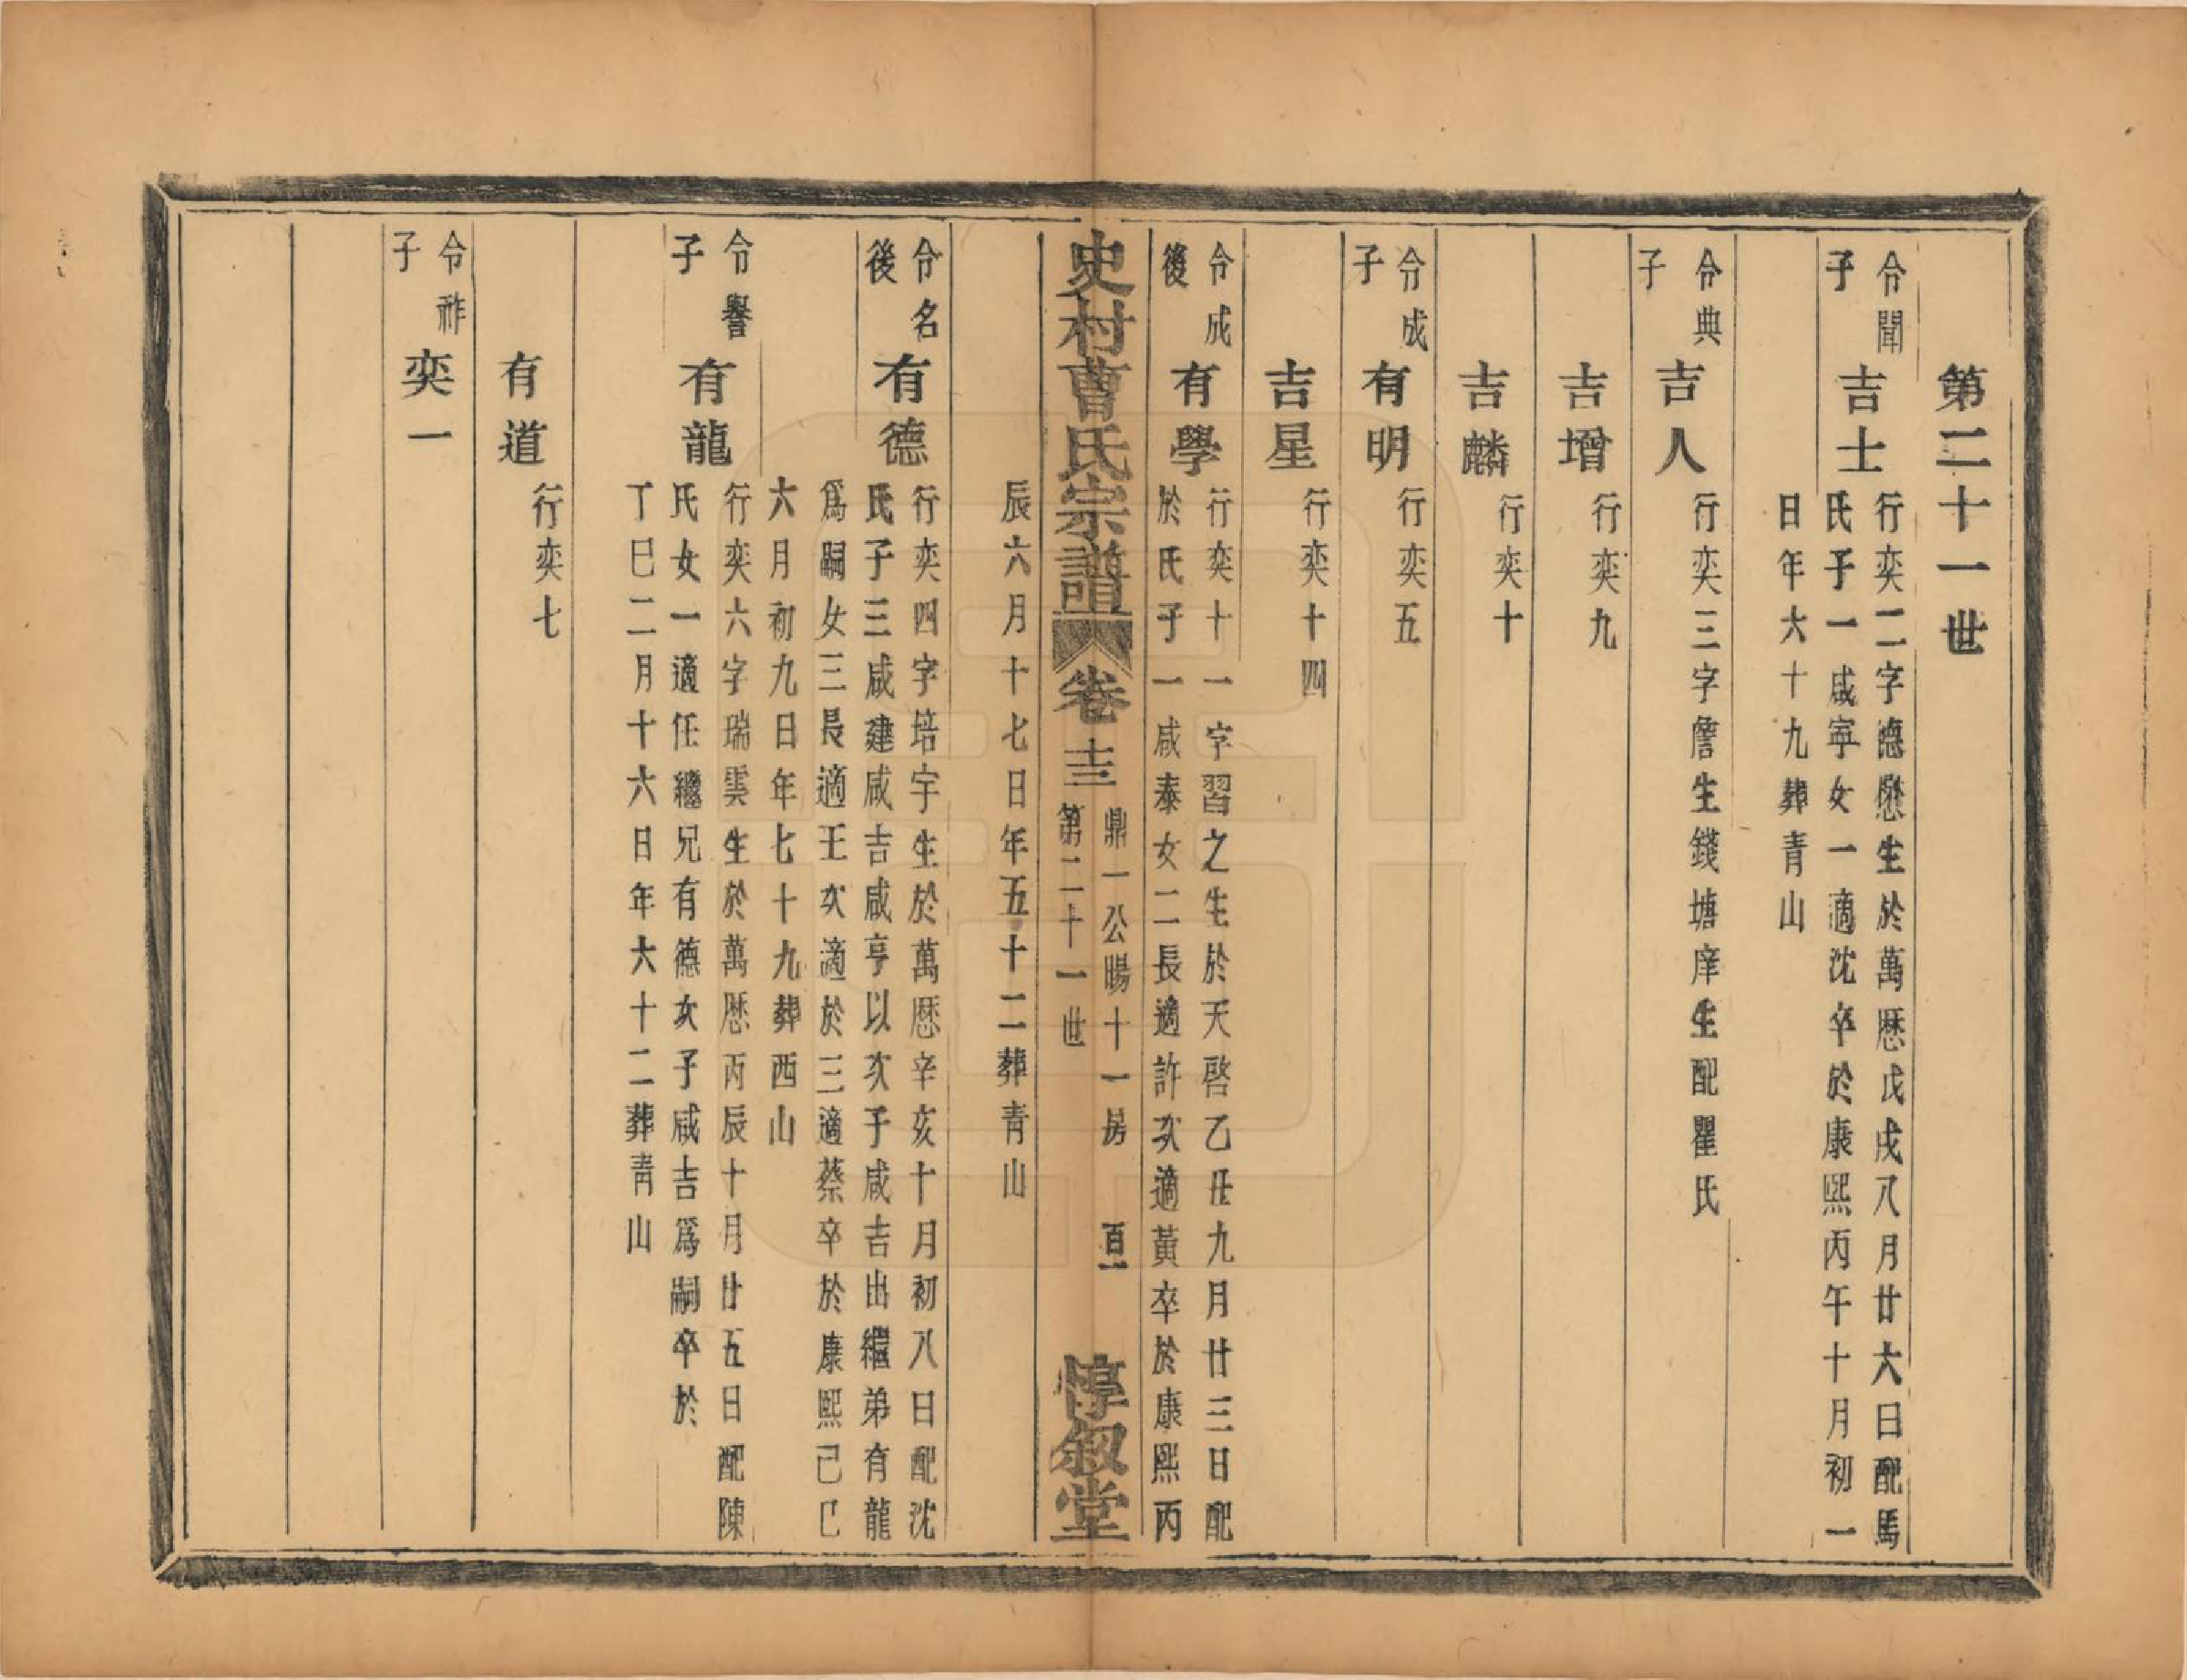 第二十一世
令聞子
吉士
行奕二字德懋生於萬歷戊戌八月廿六日配馬
氏子一咸寧女一適沈卒於康熙丙午十月初一
日年六十九葬青山
令典子
吉人
行奕三字詹生錢塘庠生配瞿氏
吉增
行奕九
吉麟
行奕十
令成子
有明
行奕五
吉星
行奕十四
令成後
有學
行奕十一字習之生於天啓乙丑九月廿三日配
於氏子一咸泰女二長適許次適黃卒於康熙丙
史村曹氏宗譜
卷十三
鼎一公暘十一房
第二十一世
百一
惇叙堂
辰六月十七日年五十二葬青山
令名後
有德
行奕四字培宇生於萬歷辛亥十月初八日配沈
氏子三咸建咸吉咸亨以次子咸吉出繼弟有龍
爲嗣女三長適王次適於三適蔡卒於康熙己巳
六月初九日年七十九葬西山
令譽子
有龍
行奕六字瑞雲生於萬歷丙辰十月廿五日配陳
氏女一適任繼兄有德次子咸吉爲嗣卒於
丁巳二月十六日年六十二葬青山
有道
行奕七
令祚子
奕一